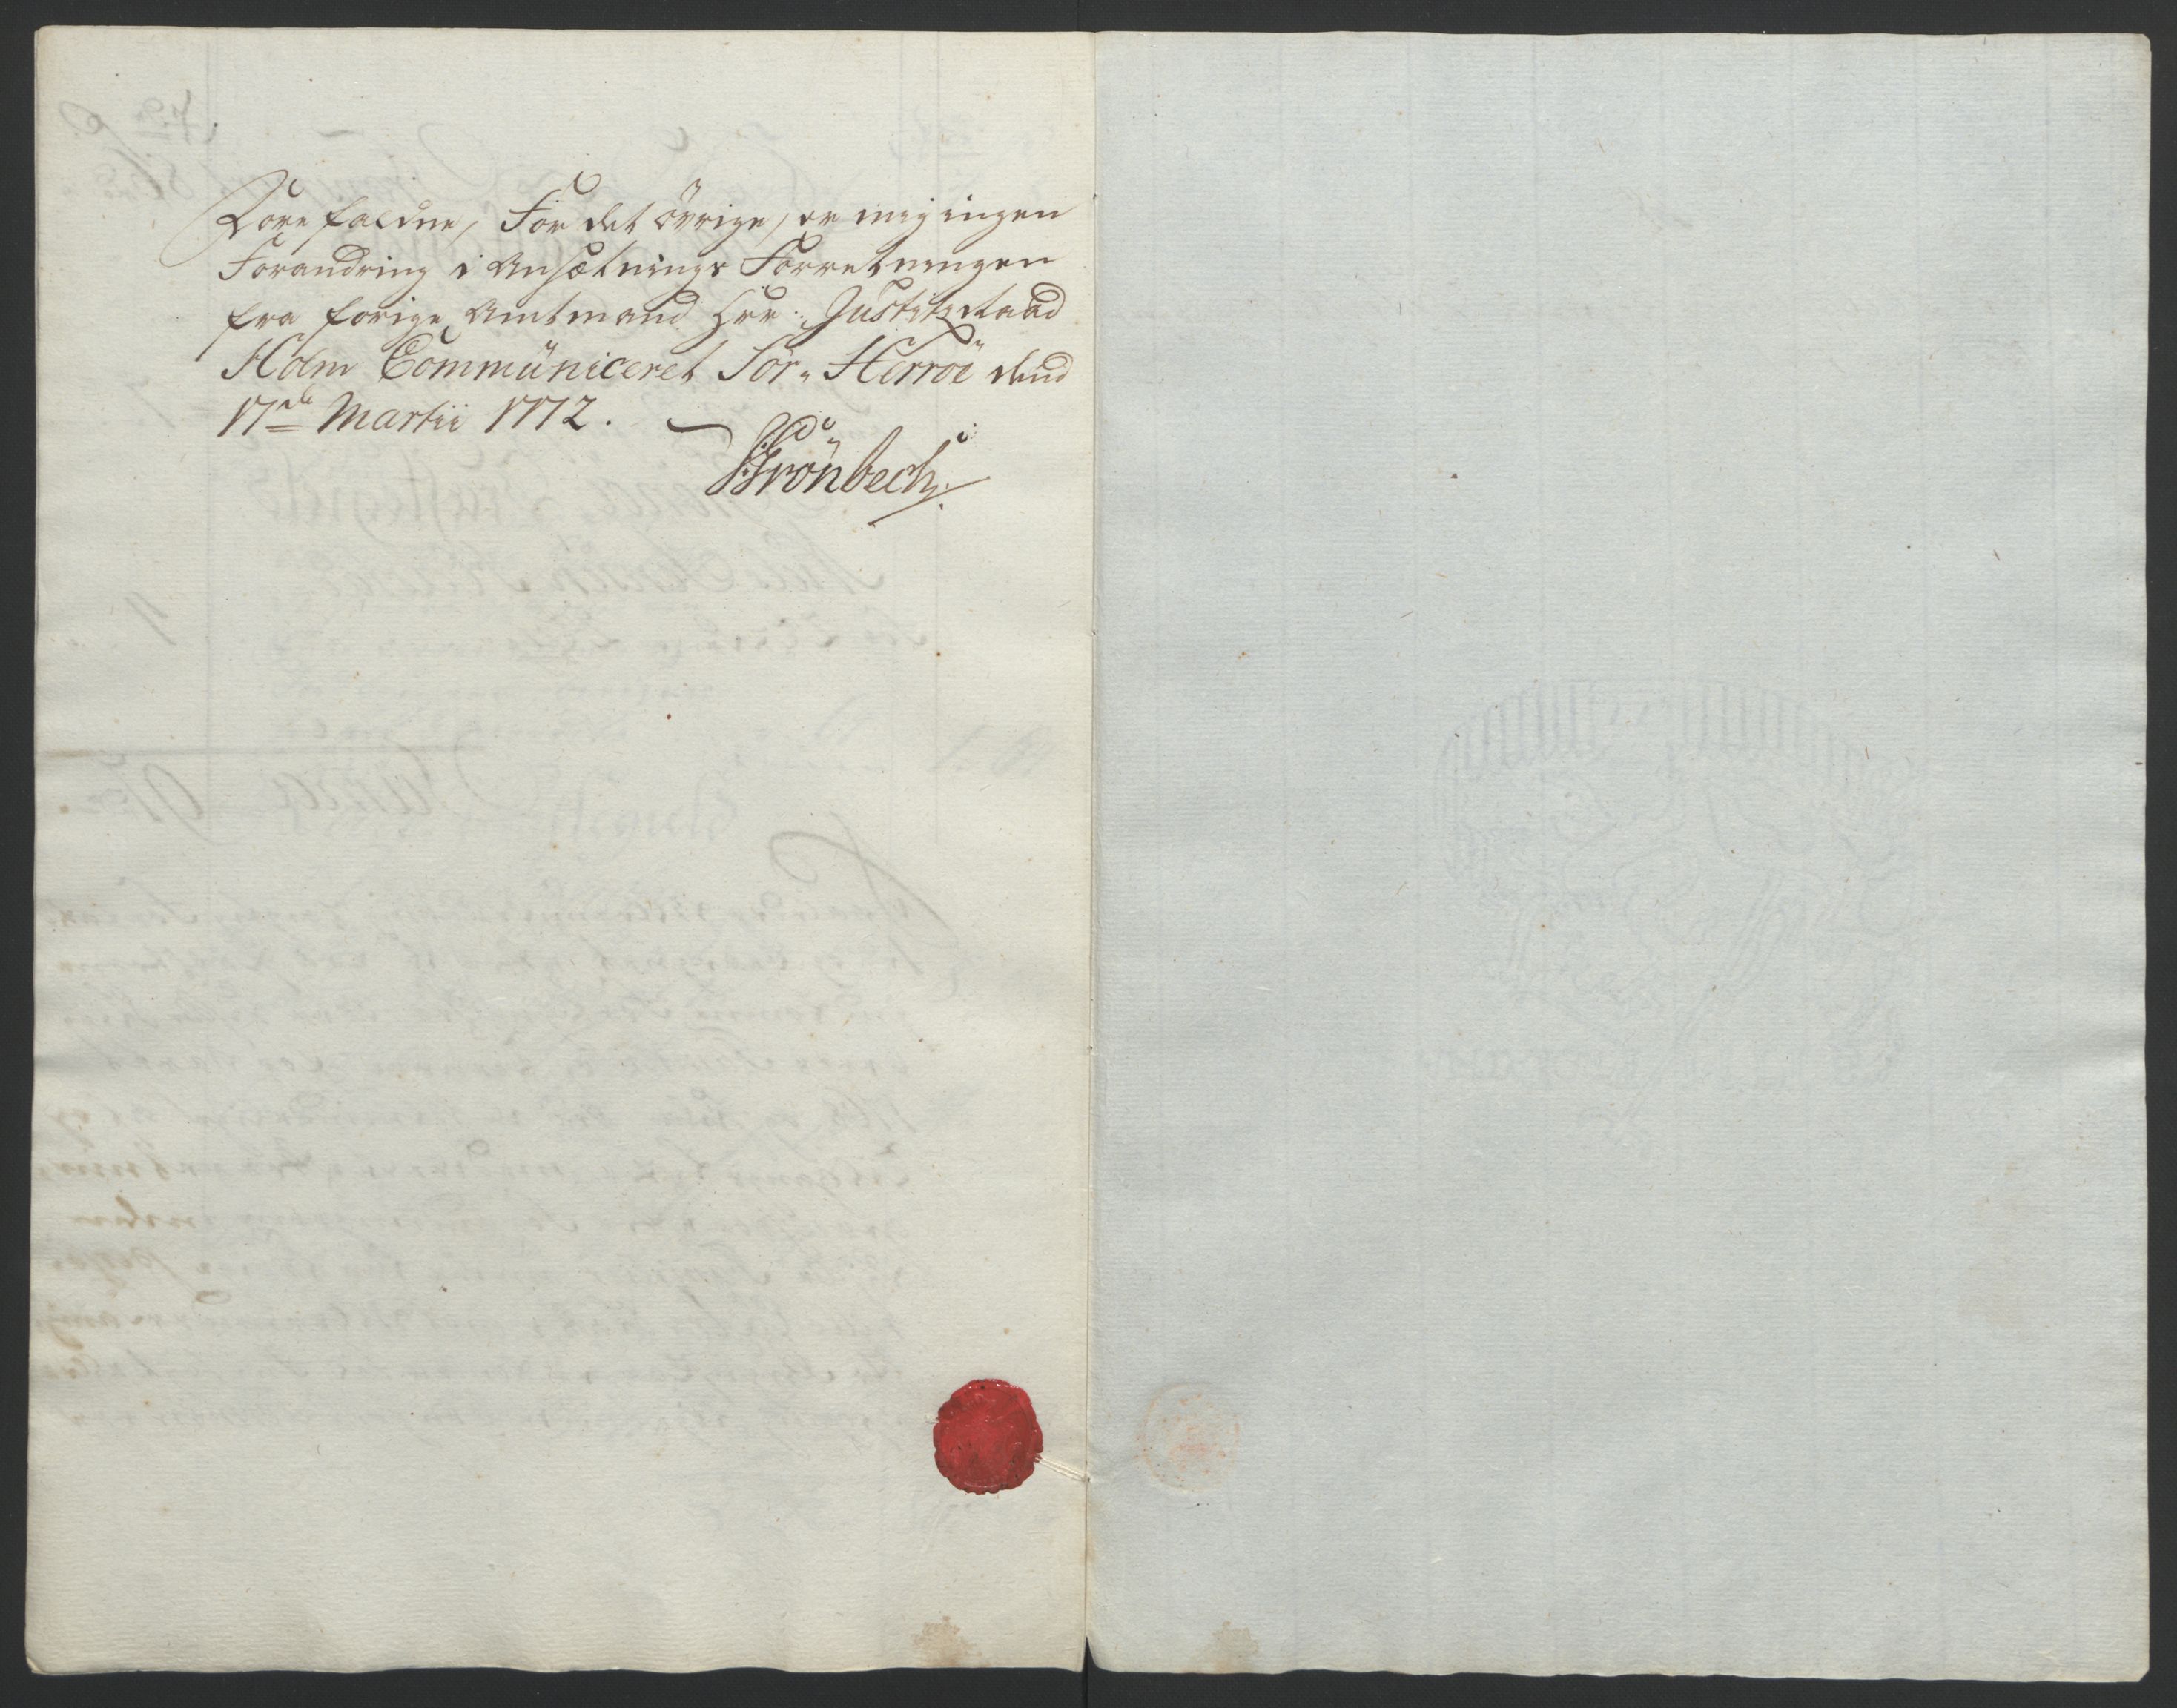 Forefaldne, For det övrige, er mig ingen
Forandring i Ansætnings Forretningen
fra forige Amtmand Hrr: Justitzraad
Holm Commüniceret Sör- Herröe dend
17de Martii 1772.
Grönbech